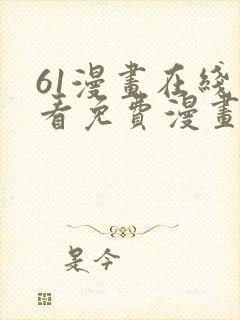 61漫畫在綫
看免費漫畫
是今